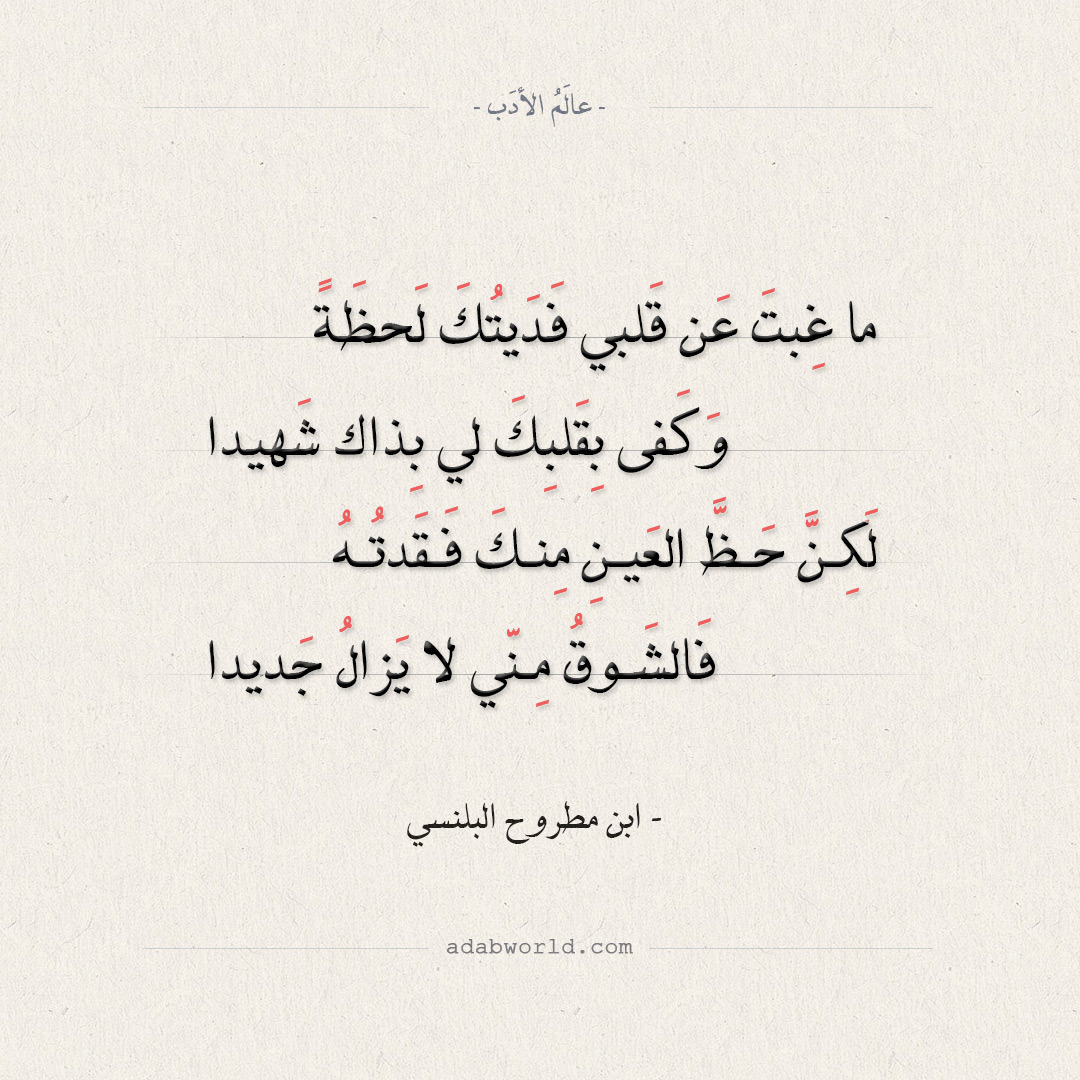 - عالَمُ الأدَب -
ما غِبتَ عَن قَلبي فَدَيتُكَ لَحظَةً
وَكَفى بِقَلبِكَ لي بِذاك شَهيدا
لَكِـنَّ حَـظَّ العَيـنِ مِنـكَ فَـقَدتُـهُ
فَالشَـوقُ مِـنّي لا يَزالُ جَديدا
- ابن مطروح البلنسي
adabworld.com